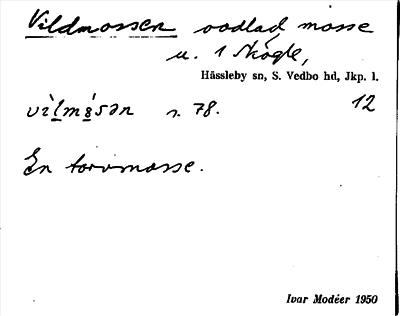 Vildmossen oodlad mosse
u. 1 Skögle,
Hässleby sn, S. Vedbo hd, Jkp. l.
s. 78. 12
En torvmosse.
Ivar Modéer 1950